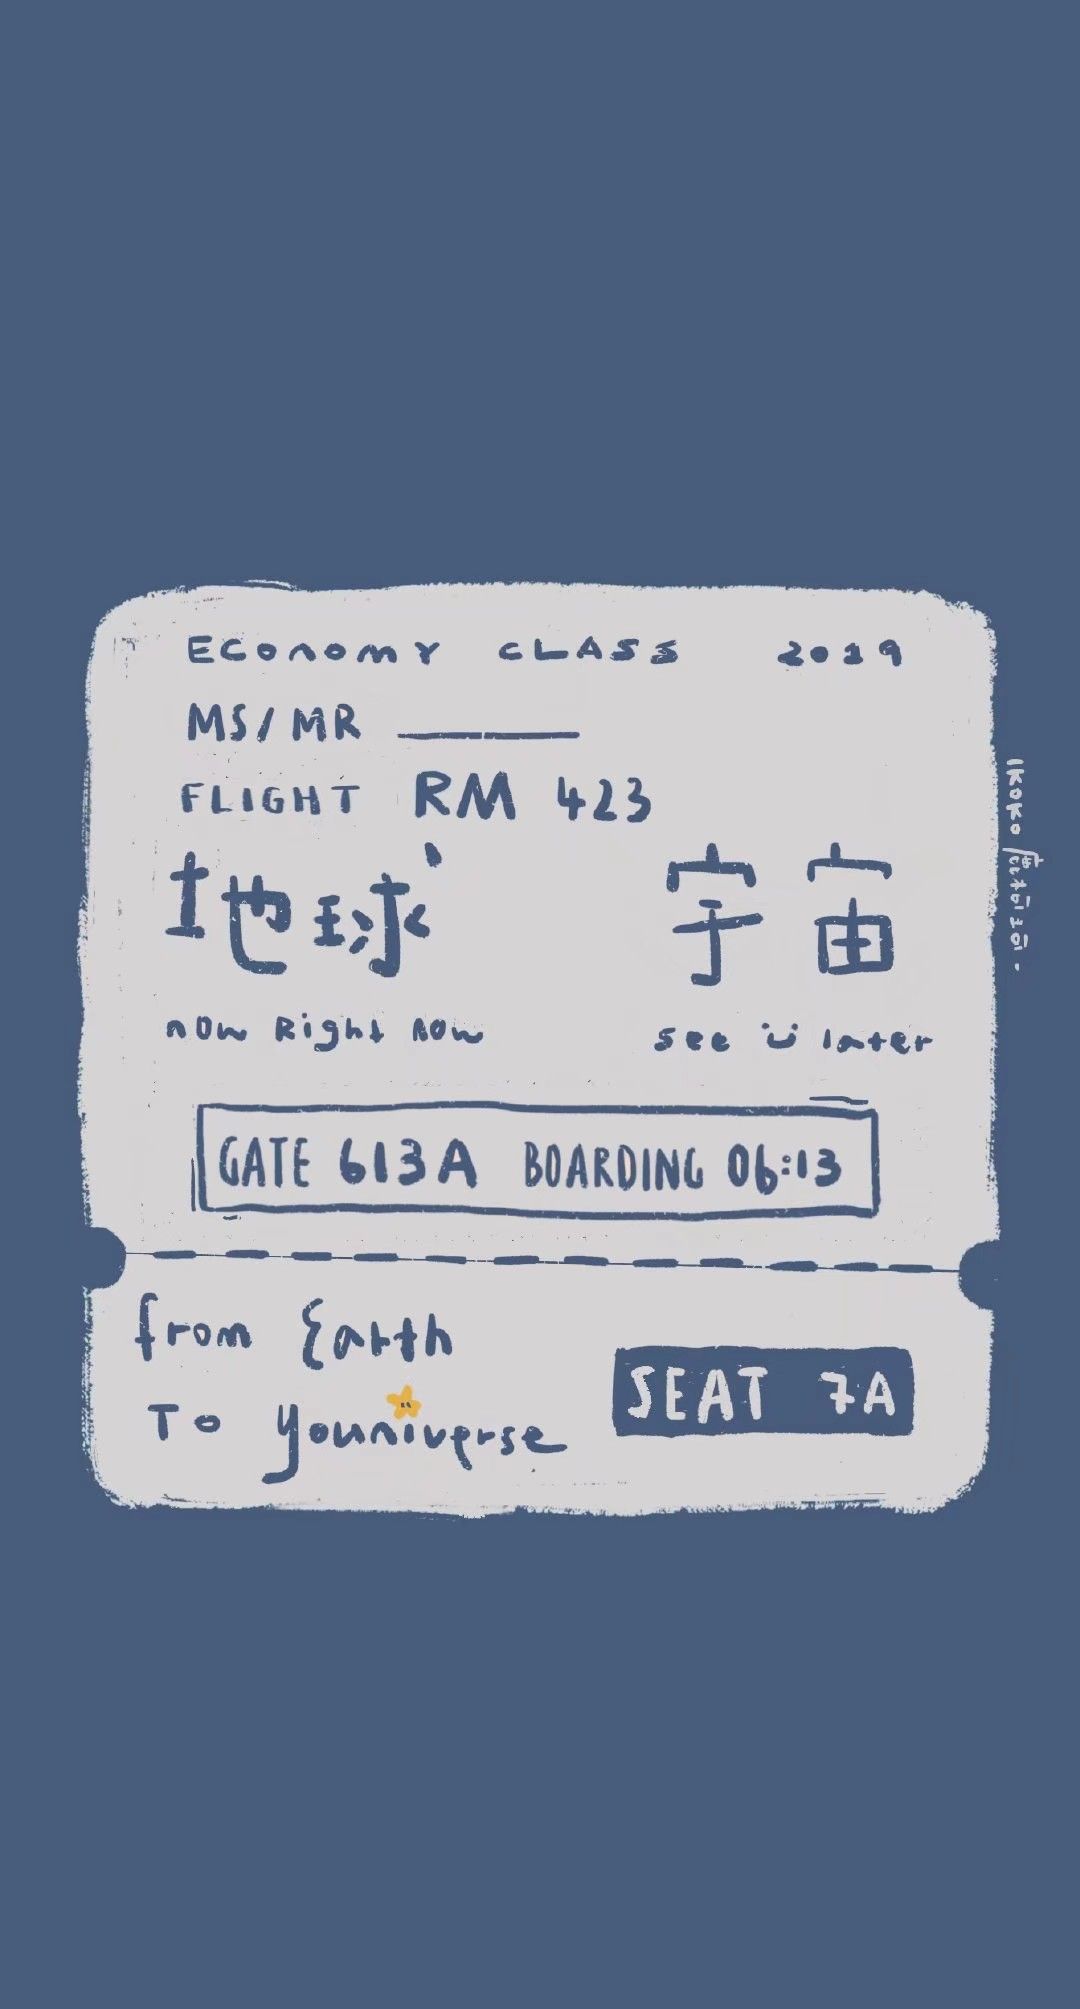 ECONOMY CLASS 2019
MS/MR
FLIGHT RM 423
地球 宇宙
now Right now see ü later
GATE 613A BOARDING 06:13
from Earth
To youniverse
SEAT 7A
IKOKO